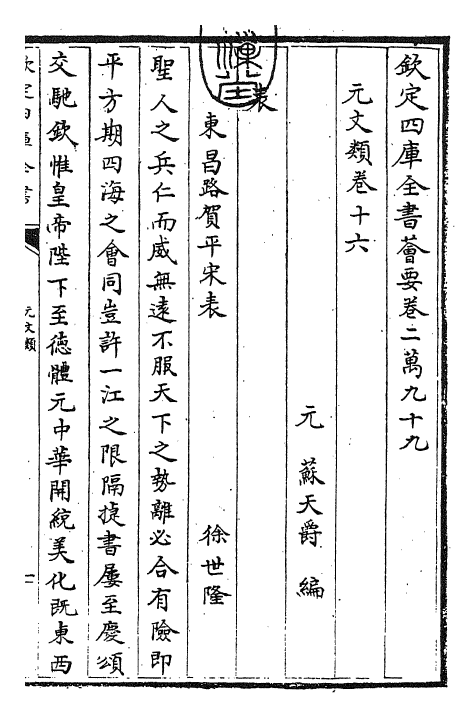 欽定四庫全書薈要卷二萬九十九
元文類卷十六
元 蘇天爵 編
表
東昌路賀平宋表 徐世隆
聖人之兵仁而威無遠不服天下之勢離必合有險即
平方期四海之會同豈許一江之限隔捷書屢至慶頌
交馳欽惟皇帝陛下至徳體元中華開統美化既東西
元文類